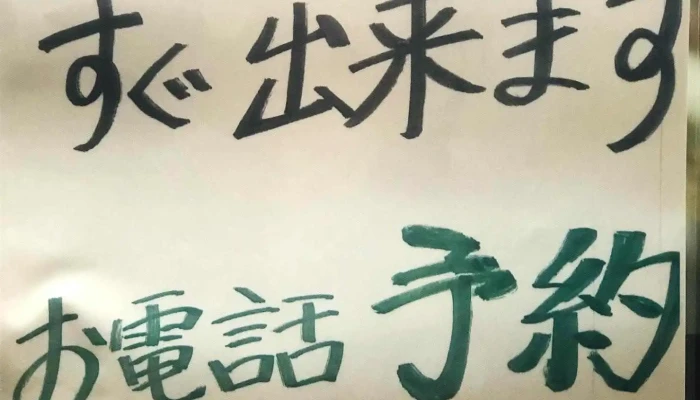 すぐ出来ます
お電話予約